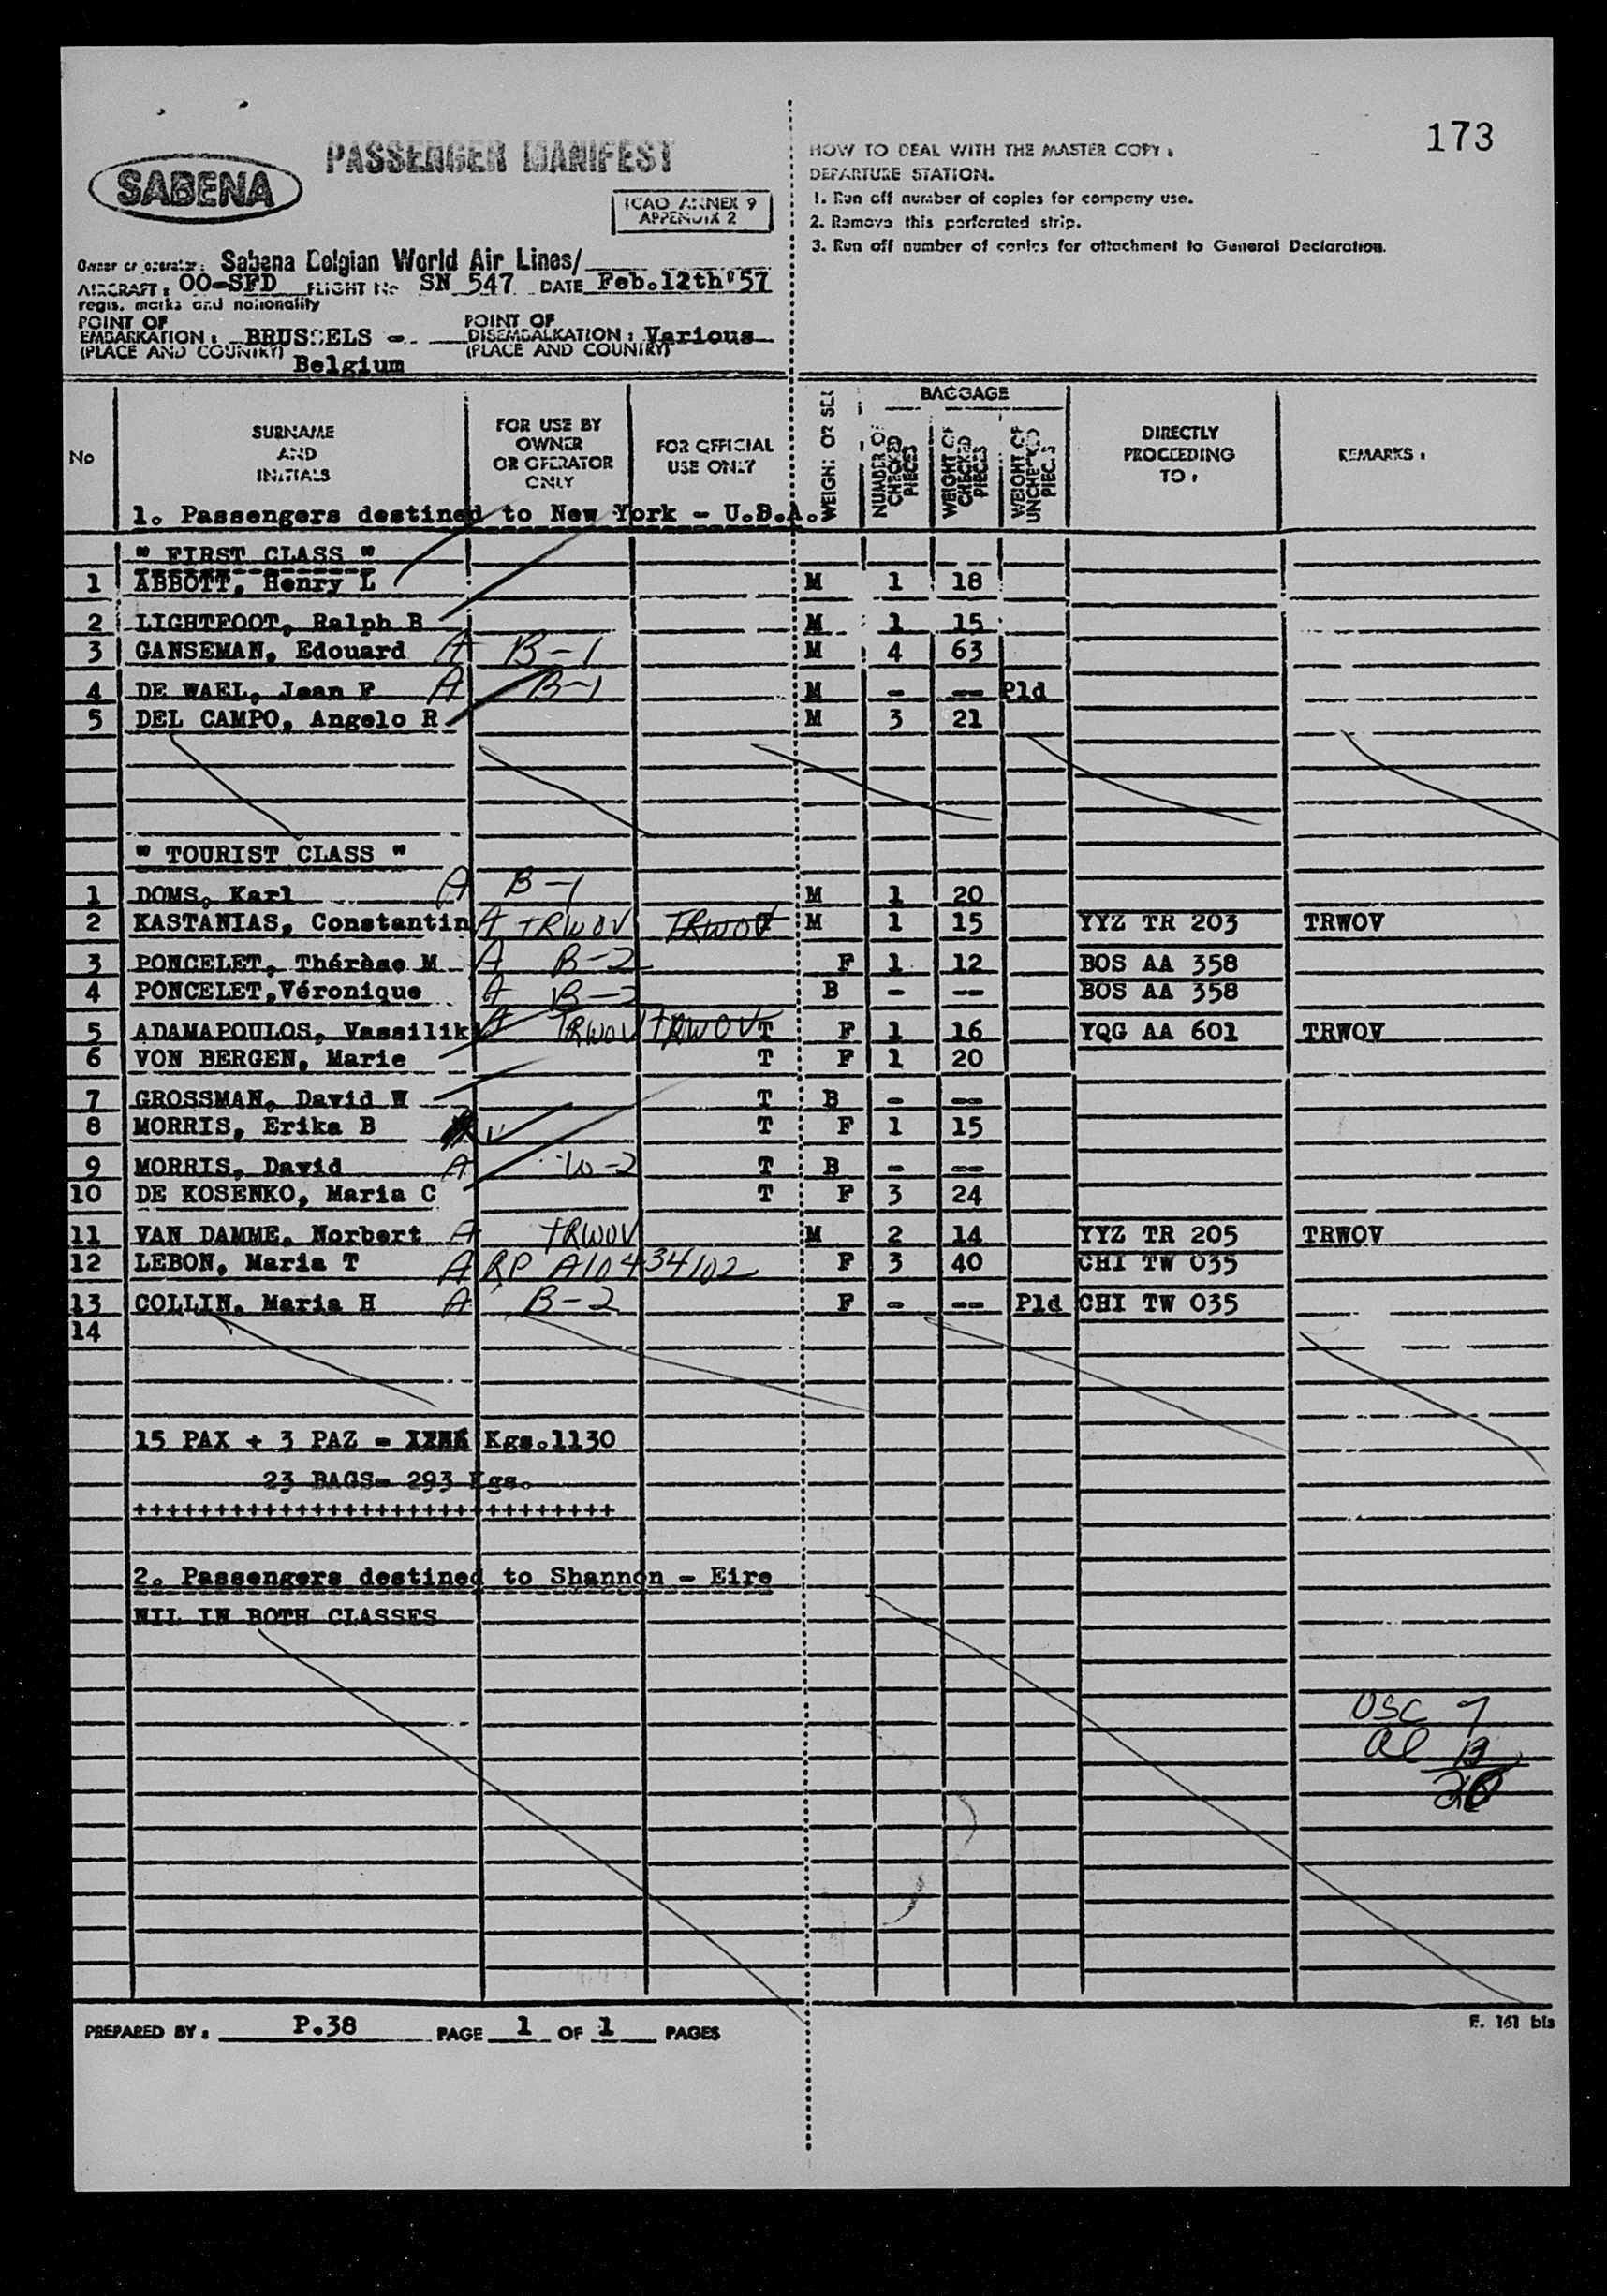 173
SABENA
PASSENGER MANIFEST
ICAO ANNEX 9
APPENDIX 2
HOW TO DEAL WITH THE MASTER COPY :
DEPARTURE STATION.
1. Run off number of copies for company use.
2. Remove this perforated strip.
3. Run off number of copies for attachment to General Declaration.
Owner or operator: Sabena Belgian World Air Lines/
AIRCRAFT : OO-SFD FLIGHT No SN 547 DATE Feb.12th'57
regis. marks and nationality
POINT OF EMBARKATION : BRUSSELS -
(PLACE AND COUNTRY) Belgium
POINT OF DISEMBALKATION : Various
(PLACE AND COUNTRY)
BAGGAGE
No SURNAME AND INITIALS FOR USE BY OWNER OR OPERATOR ONLY FOR OFFICIAL USE ONLY WEIGHT OR SEX NUMBER OF CHECKED PIECES WEIGHT OF CHECKED PIECES WEIGHT OF UNCHECKED PIECES DIRECTLY PROCEEDING TO : REMARKS :
1. Passengers destined to New York - U.S.A.
" FIRST CLASS "
1 ABBOTT, Henry L M 1 18
2 LIGHTFOOT, Ralph B M 1 15
3 GANSEMAN, Edouard A B-1 M 4 63
4 DE WAEL, Jean F A B-1 M - -- Pld
5 DEL CAMPO, Angelo R M 3 21
" TOURIST CLASS "
1 DOMS, Karl A B-1 M 1 20
2 KASTANIAS, Constantin A TRWOV TRWOV M 1 15 YYZ TR 203 TRWOV
3 PONCELET, Thérèse M A B-2 F 1 12 BOS AA 358
4 PONCELET,Véronique A B-2 B - -- BOS AA 358
5 ADAMAPOULOS, Vassilik A TRWOV TRWOV T F 1 16 YQG AA 601 TRWOV
6 VON BERGEN, Marie T F 1 20
7 GROSSMAN, David W T B - --
8 MORRIS, Erika B T F 1 15
9 MORRIS, David A W-2 T B - --
10 DE KOSENKO, Maria C T F 3 24
11 VAN DAMME, Norbert A TRWOV M 2 14 YYZ TR 205 TRWOV
12 LEBON, Maria T A RP A10434102 F 3 40 CHI TW 035
13 COLLIN, Maria H A B-2 F - -- Pld CHI TW 035
14
15 PAX + 3 PAZ = Kgs.1130
23 BAGS= 293 Kgs.
++++++++++++++++++++++++++++++
2. Passengers destined to Shannon - Eire
NIL IN BOTH CLASSES
USC 7
al 13
20
PREPARED BY : P.38 PAGE 1 OF 1 PAGES
F. 161 bis